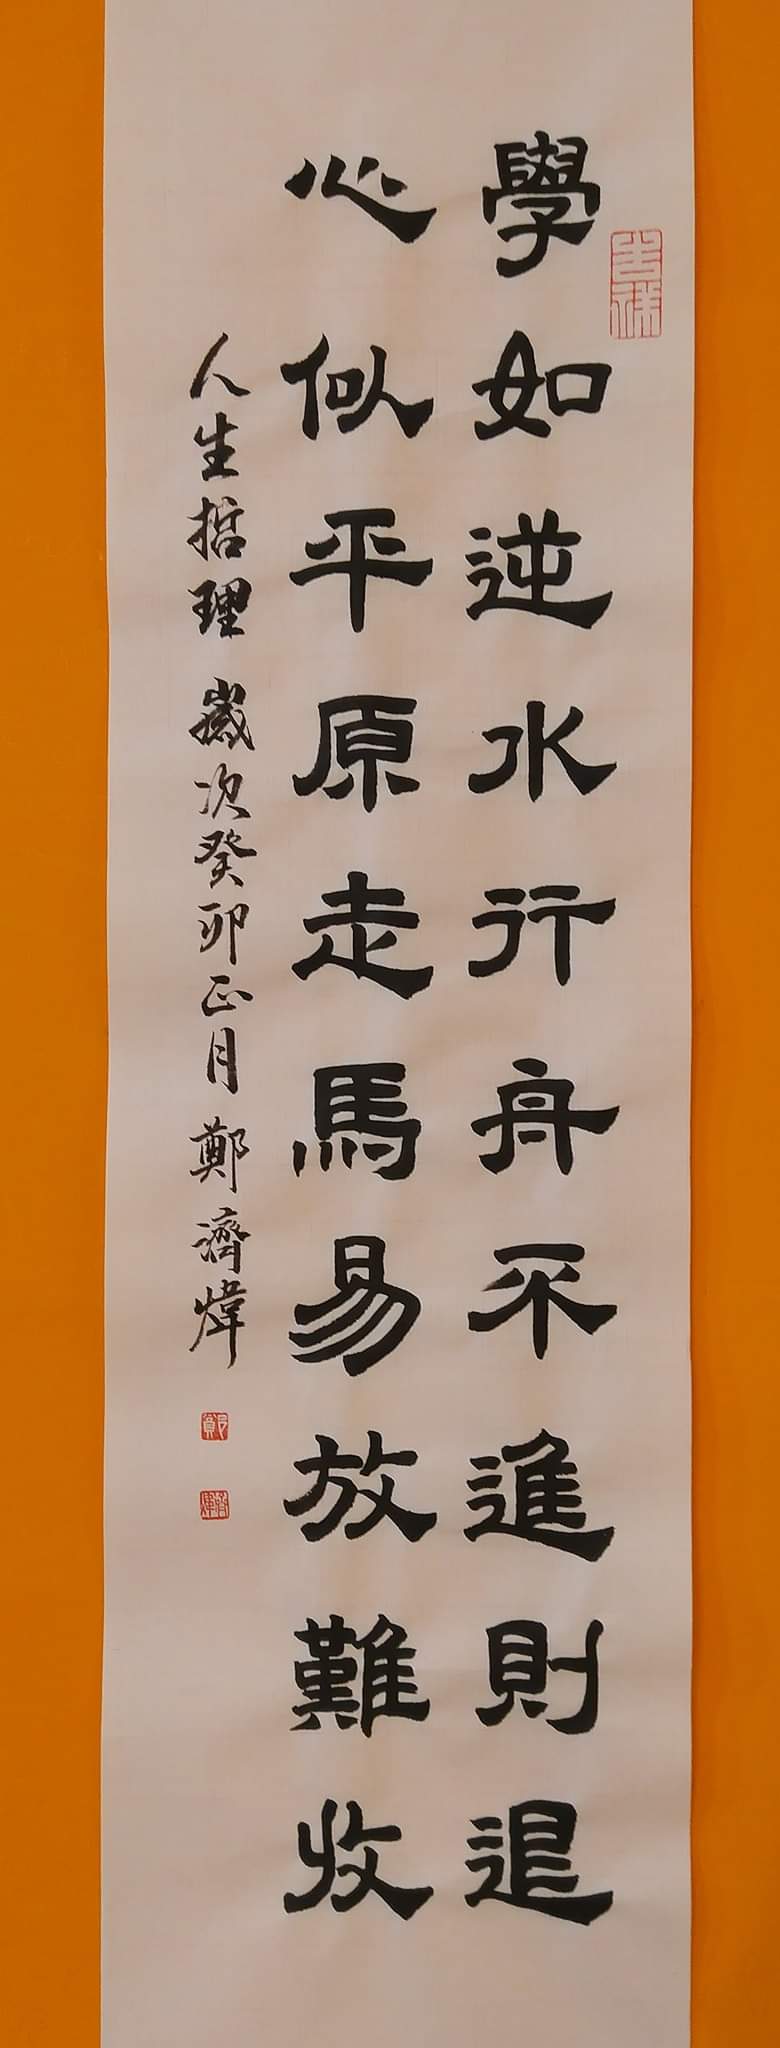 學如逆水行舟不進則退
心似平原走馬易放難收
人生哲理 歲次癸卯正月 鄭濟煒
吉祥